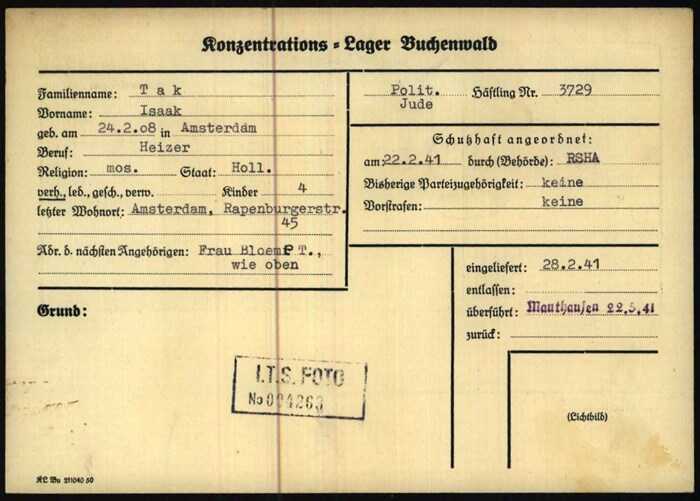 Konzentrations - Lager Buchenwald
Familienname: T a k
Vorname: Isaak
geb. am 24.2.08 in Amsterdam
Beruf: Heizer
Religion: mos. Staat: Holl.
verh., led., gesch., verw. Kinder 4
letzter Wohnort: Amsterdam, Rapenburgerstr.
45
Adr. d. nächsten Angehörigen: Frau T.,
wie oben
Grund:
Polit. Häftling Nr. 3729
Jude
Schutzhaft angeordnet:
am: 22.2.41 durch (Behörde): RSHA
Bisherige Parteizugehörigkeit: keine
Vorstrafen: keine
eingeliefert: 28.2.41
entlassen:
überführt: Mauthausen 22.5.41
zurück:
(Lichtbild)
I.T.S. FOTO
No
KL Bu